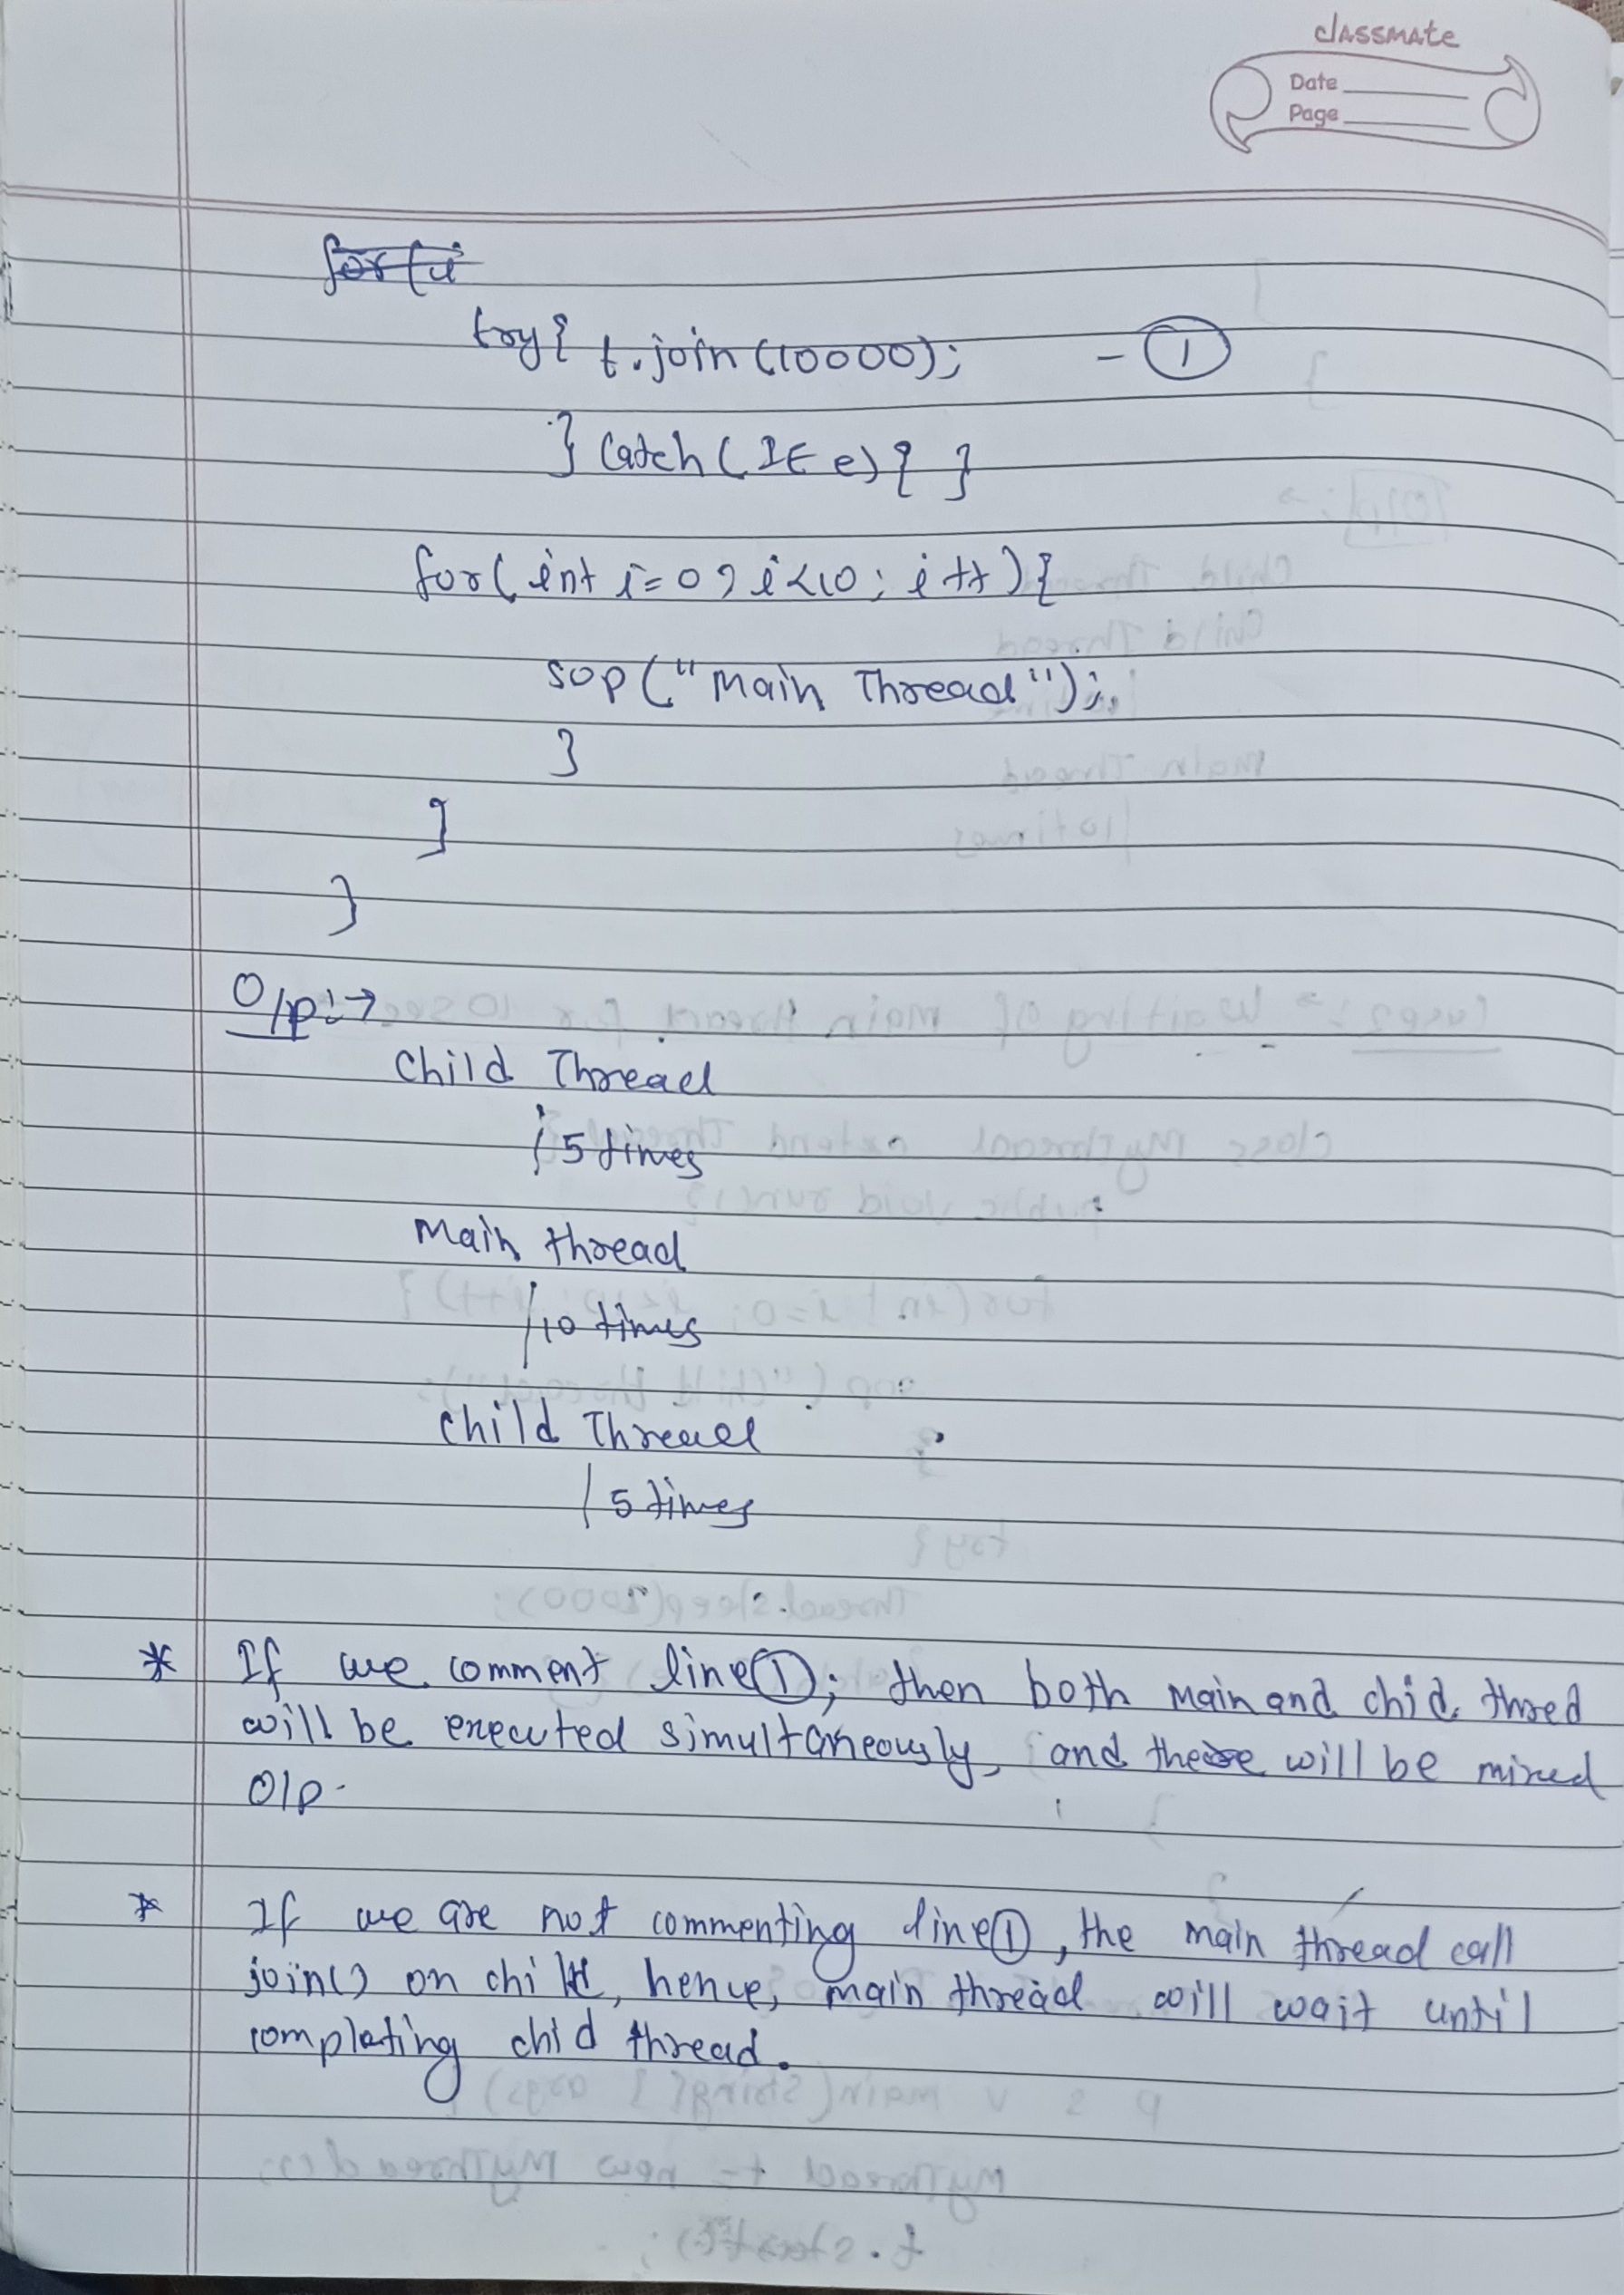 classmate
Date
Page
for(i
try{ t.join(10000); - ①
} catch(IE e){ }
for(int i=0; i<10; i++){
sop("Main Thread");
}
}
}
O/p:→
Child Thread
5 times
Main thread
10 times
Child Thread
5 times
* If we comment line①; then both Main and chid thred
will be executed simultaneously, and there will be mixed
O/p.
* If we are not commenting line①, the main thread call
join() on child, hence, main thread will wait until
completing chid thread.